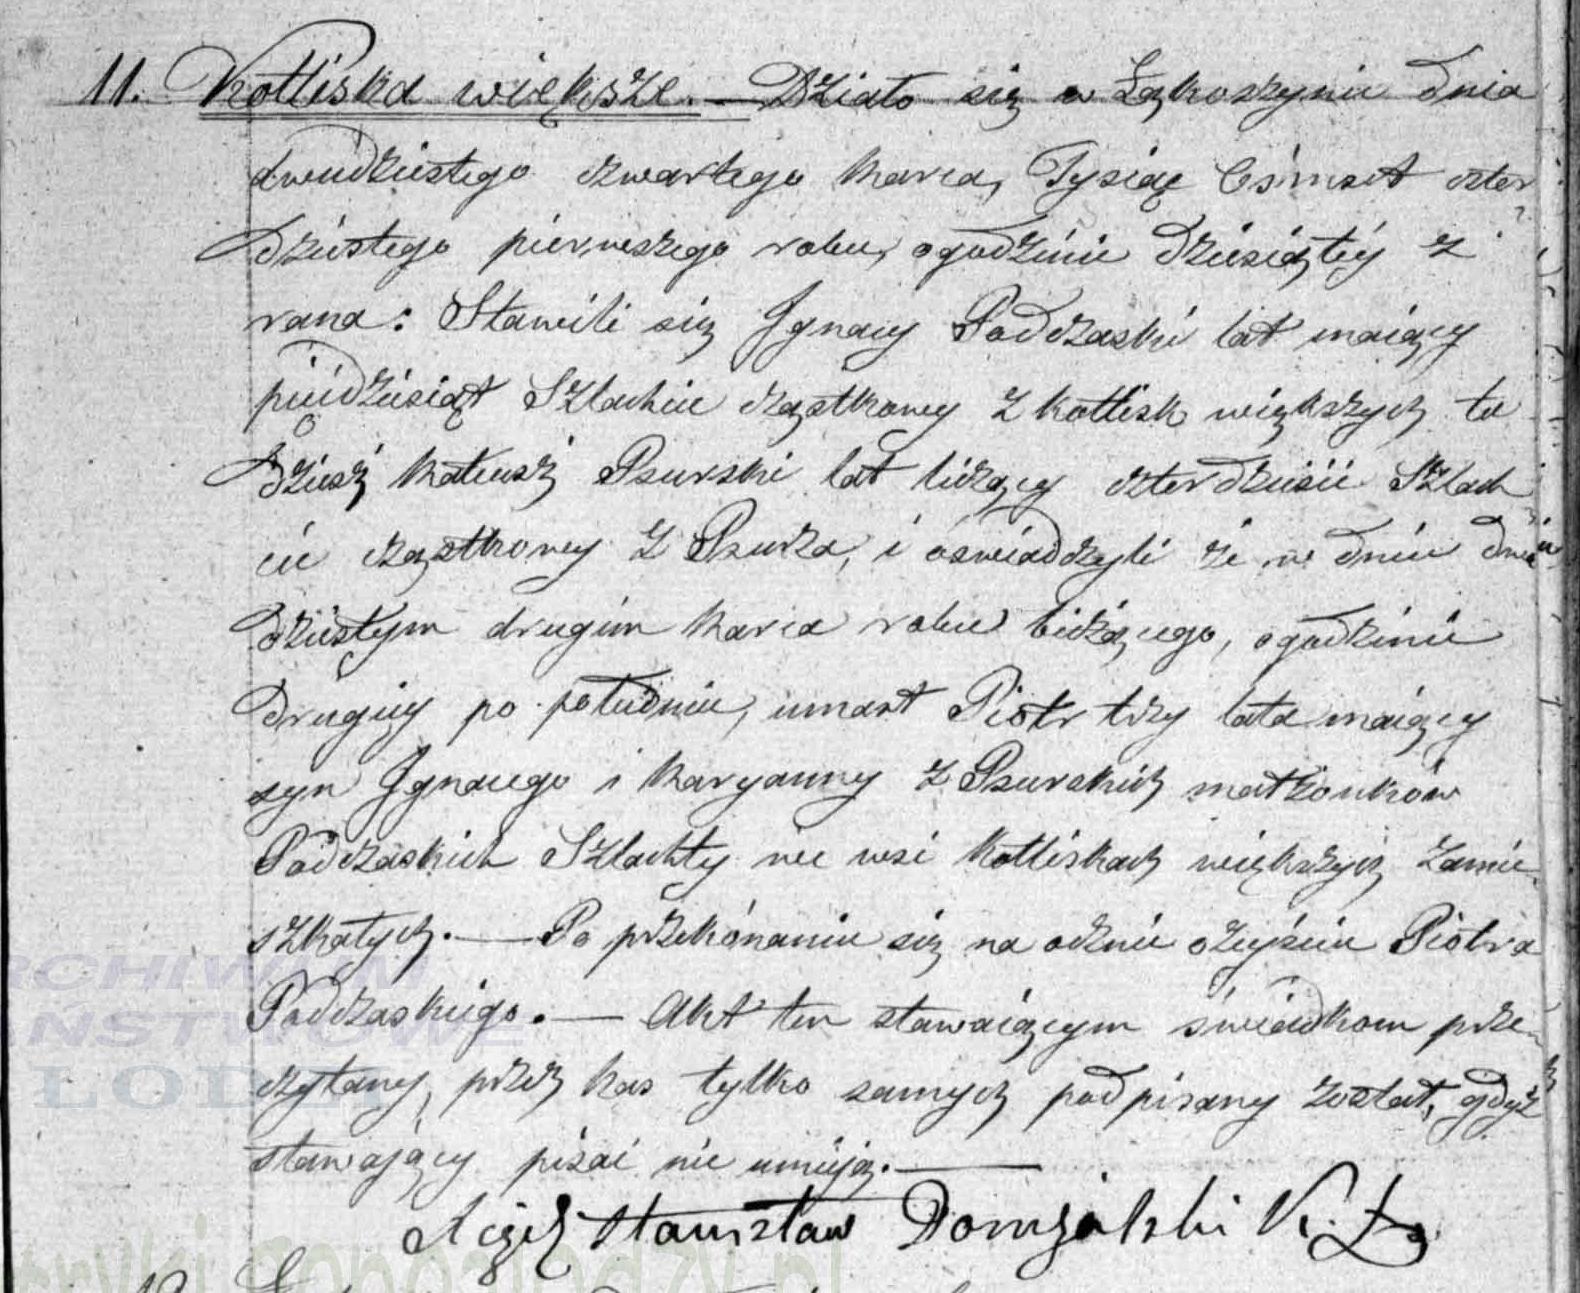 11. Kotliska większe. — Działo się w Łąkoszynie dnia
dwudziestego czwartego Marca, Tysiąc Ośmset czter
dziestego pierwszego roku, ogodzinie dziesiątéj z
rana: Stawili się Jgnacy Podczaski lat maiący
piędziesiąt Szlachcic cząstkowy z Kotlisk większych tu
dzież Mateusz Psurski lat liczący czterdzieści Szlach
cic cząstkowy z Psurza, i oświadczyli że w dniu dwu
dziestym drugim Marca roku bieżącego, ogodzinie
drugiéy po południu, umarł Piotr trzy lata maiący
syn Jgnacego i Maryanny z Psurskich małżonków
Podczaskich Szlachty we wsi Kotliskach większych zamie
szkałych. — Po przekónaniu się na ocznie ozejściu Piotra
Podczaskiego. — Akt ten stawaiącym świadkom prze
czytany, przez Nas tylko samych podpisany został, gdyż
stawający pisać nie umieją. —
Xiądz Stanisław Domżalski K. Ł.
ARCHIWUM
PAŃSTWOWE
ŁODZI
metryki.genealodzy.pl
12.